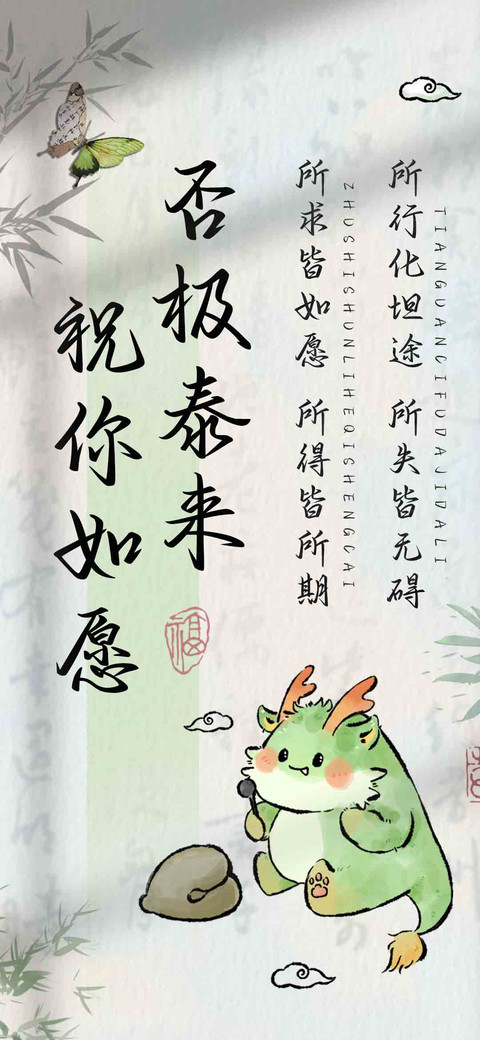 TIANGUANCIFUDAJIDALI
所行化坦途 所失皆无碍
ZHUSHISHUNLIHEQISHENGCAI
所求皆如愿 所得皆所期
否极泰来
祝你如愿
福